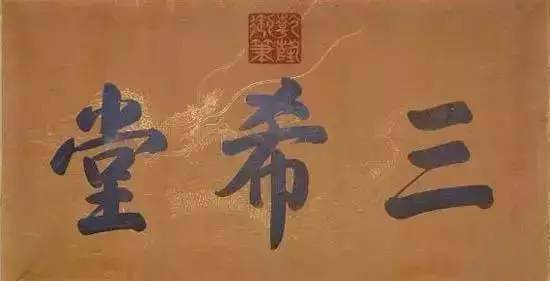 三希堂
乾隆御筆